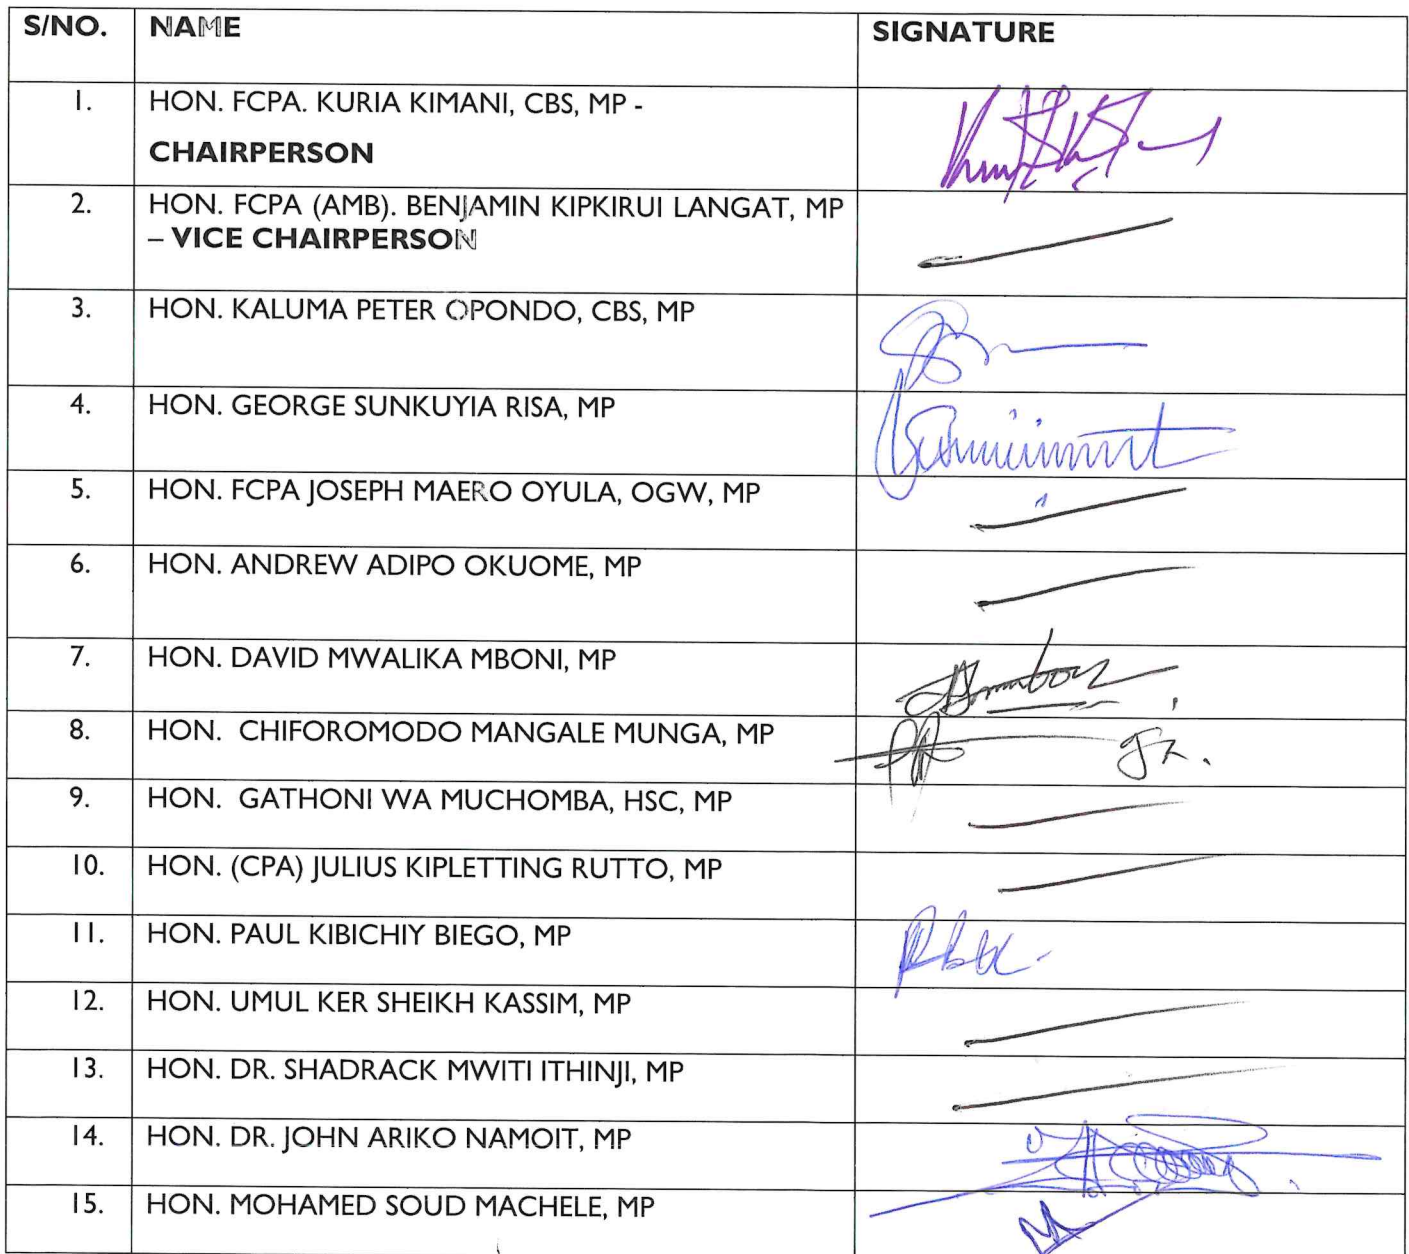 S/NO. NAME SIGNATURE
1. HON. FCPA. KURIA KIMANI, CBS, MP -
CHAIRPERSON
2. HON. FCPA (AMB). BENJAMIN KIPKIRUI LANGAT, MP
– VICE CHAIRPERSON
3. HON. KALUMA PETER OPONDO, CBS, MP
4. HON. GEORGE SUNKUYIA RISA, MP
5. HON. FCPA JOSEPH MAERO OYULA, OGW, MP
6. HON. ANDREW ADIPO OKUOME, MP
7. HON. DAVID MWALIKA MBONI, MP
8. HON. CHIFOROMODO MANGALE MUNGA, MP
9. HON. GATHONI WA MUCHOMBA, HSC, MP
10. HON. (CPA) JULIUS KIPLETTING RUTTO, MP
11. HON. PAUL KIBICHIY BIEGO, MP
12. HON. UMUL KER SHEIKH KASSIM, MP
13. HON. DR. SHADRACK MWITI ITHINJI, MP
14. HON. DR. JOHN ARIKO NAMOIT, MP
15. HON. MOHAMED SOUD MACHELE, MP